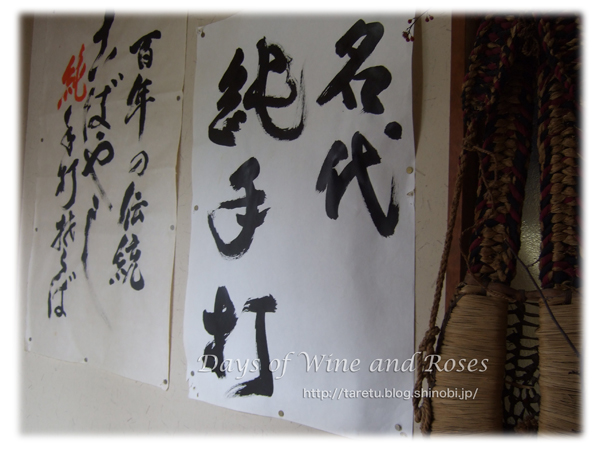 名代
純手打
百年の伝統
純手打そば
Days of Wine and Roses
http://taretu.blog.shinobi.jp/